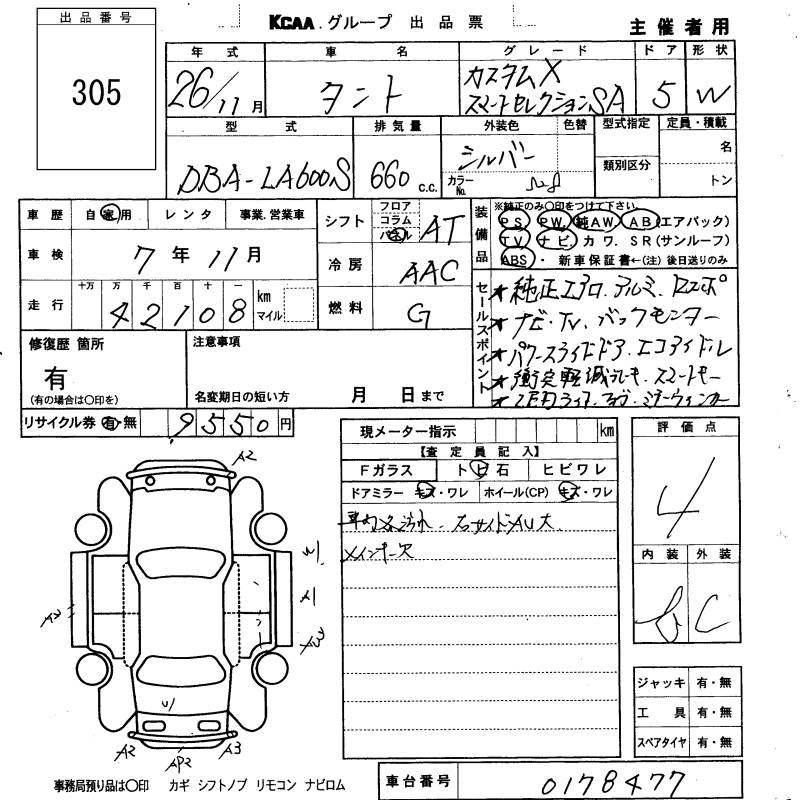 出品番号
305
KCAA.グループ 出品票
主催者用
年式 車名 グレード ドア 形状
26/11月 タント カスタムX スマートセレクションSA 5 W
型式 排気量 外装色 色替 型式指定 定員・積載
DBA-LA600S 660 c.c. シルバー カラーNo. 類別区分 名 トン
車歴 自家用 レンタ 事業.営業車
車検 7年11月
走行 十万 万 千 百 十 一 km マイル
4 2 1 0 8
シフト フロア コラム パネル AT
冷房 AAC
燃料 G
装備品 ※純正のみ○印をつけて下さい。
PS PW 純AW AB(エアバック)
TV ナビ カワ. SR(サンルーフ)
ABS ・新車保証書←(注)後日送りのみ
セールスポイント
★純正エアロ.アルミ.
★ナビ・TV.バックモニター
★パワースライドドア.エコアイドル
★衝突軽減ブレーキ.スマートキー
修復歴 箇所
有
(有の場合は○印を)
注意事項
名変期日の短い方 月 日まで
リサイクル券 有・無 9550円
現メーター指示 km
【査定員記入】
Fガラス トビ石 ヒビワレ
ドアミラー キズ・ワレ ホイール(CP) キズ・ワレ
メインキー欠
評価点
4
内装 外装
C
ジャッキ 有・無
工具 有・無
スペアタイヤ 有・無
A2
W1
A1
XW3
A2
U1
A2
AP2
A3
事務局預り品は○印 カギ シフトノブ リモコン ナビロム
車台番号 0178477